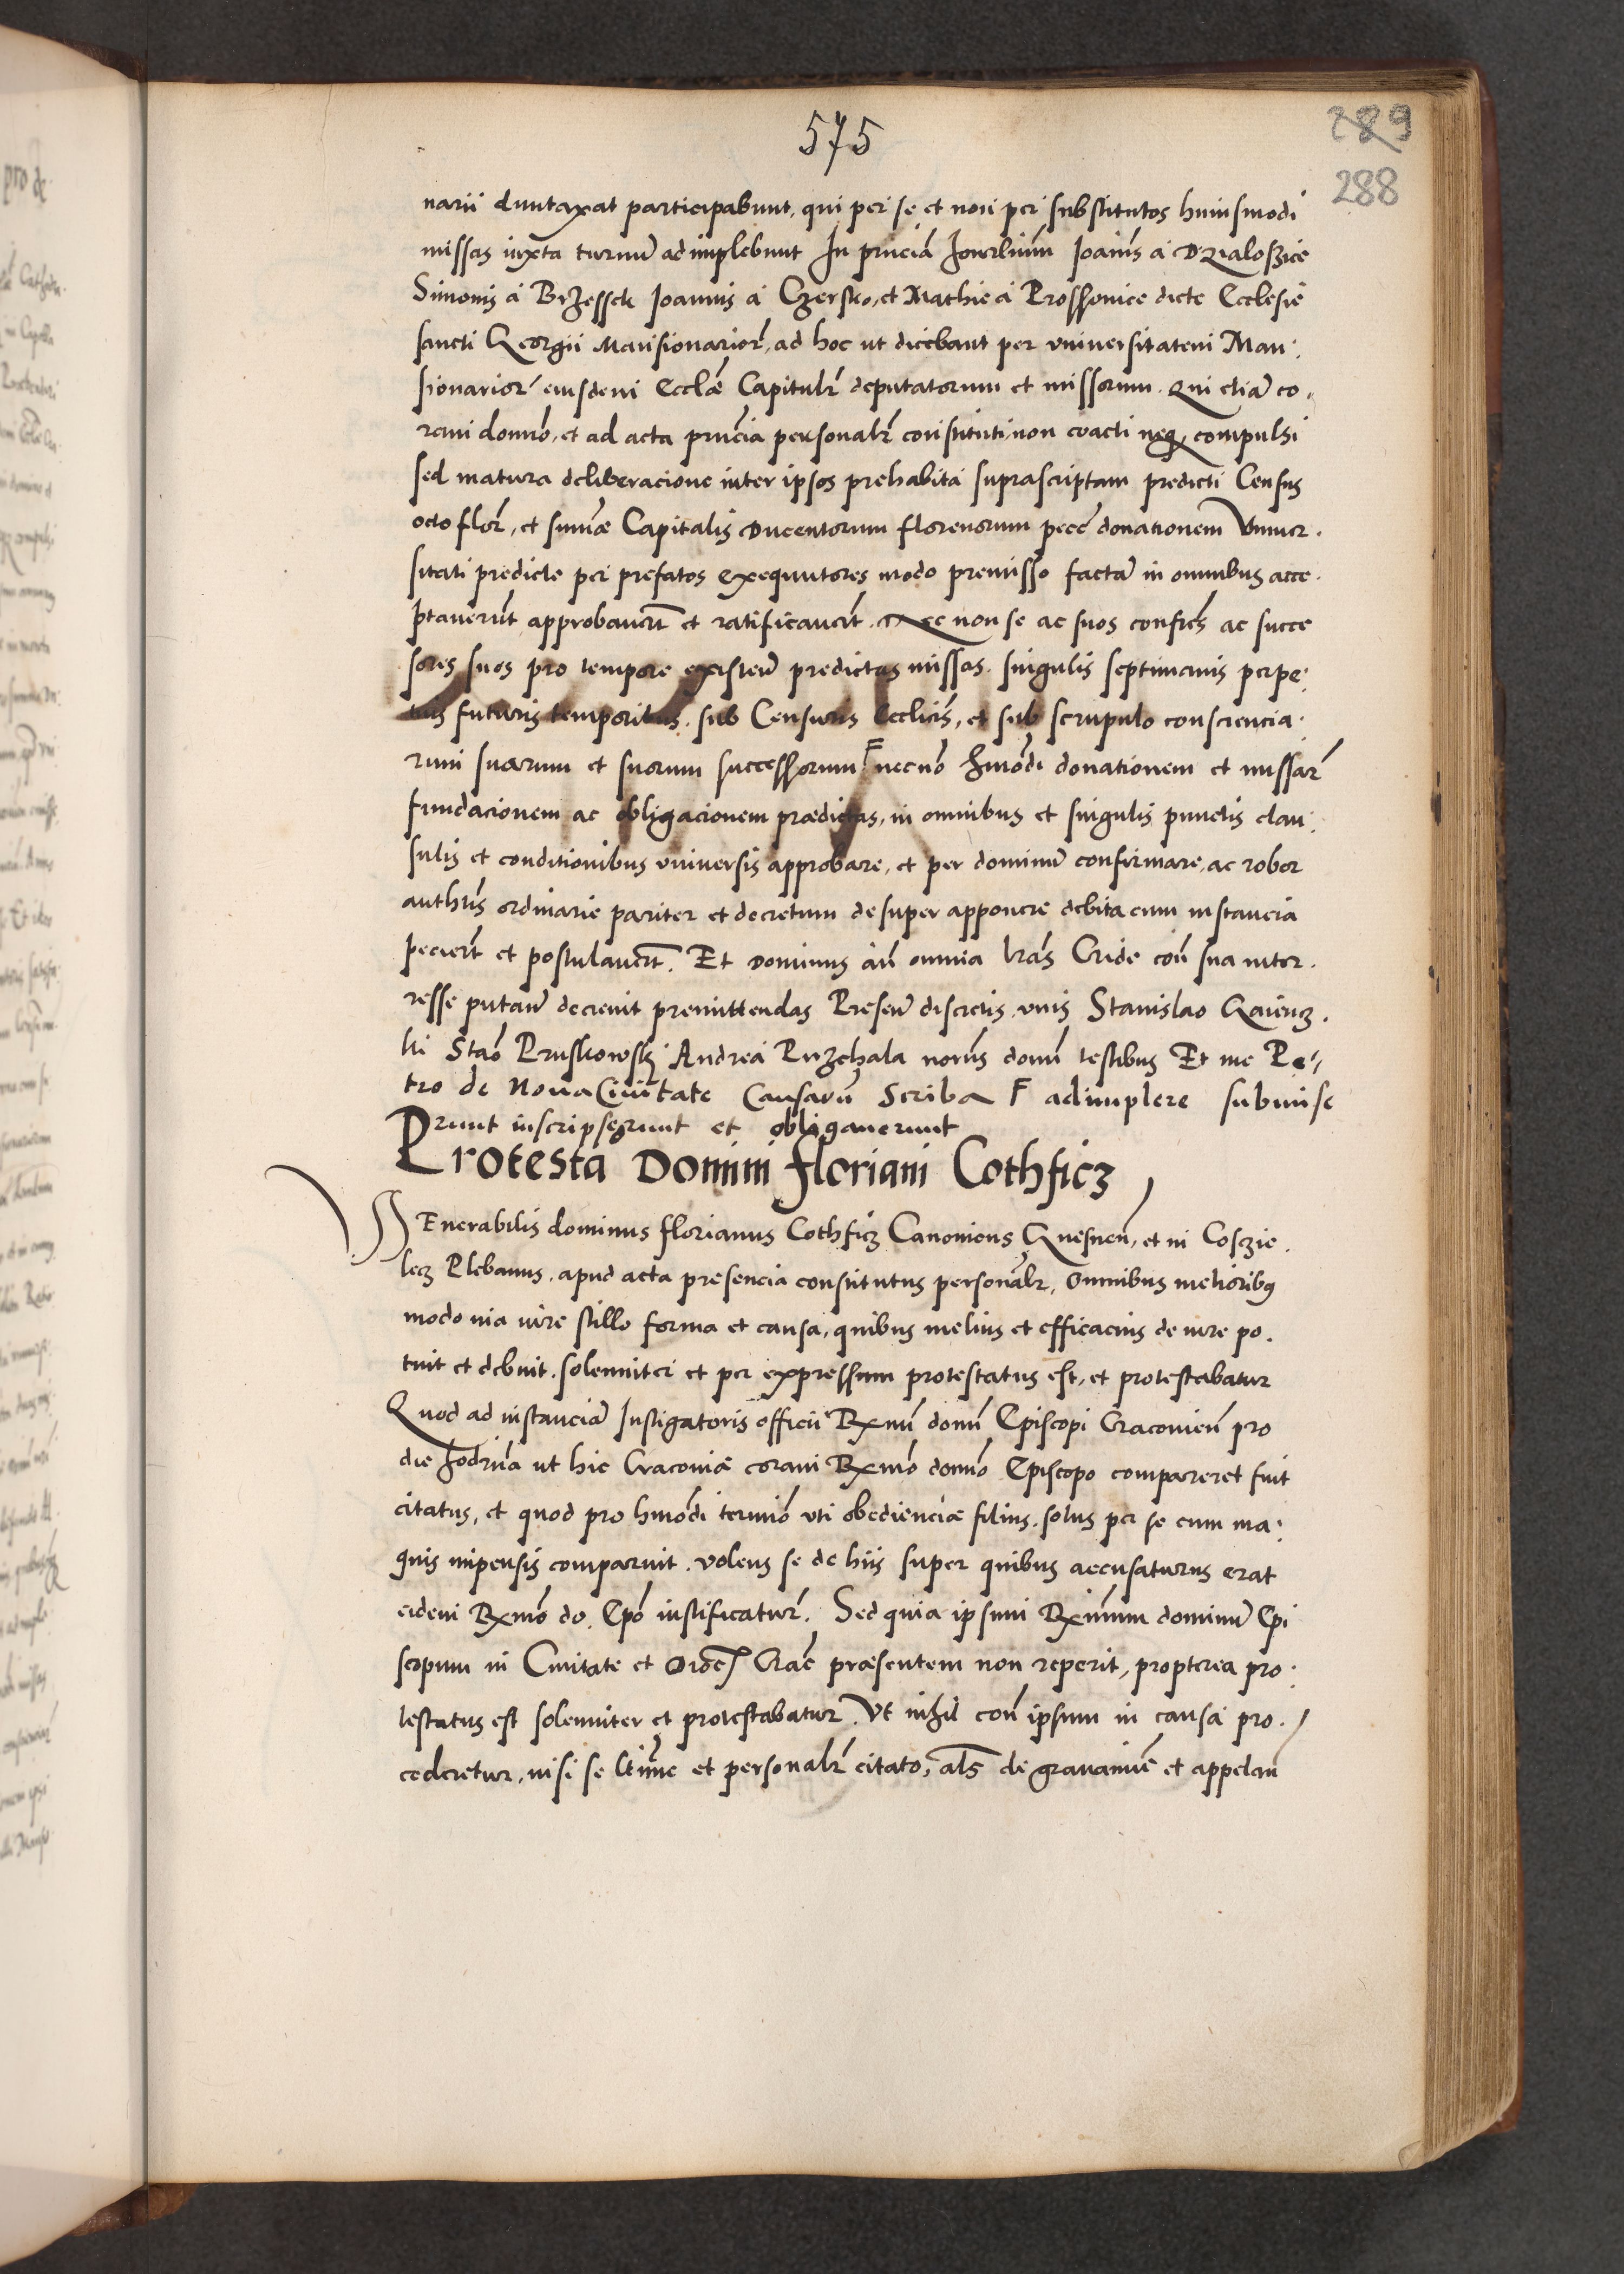 575
289
288
narii duntaxat participabunt, qui per se et non per substitutos huiusmodi
missas iuxta turnum adimplebunt In pnciã honorlium Joannis á Dzialoszice
Simonis á Brzessek Joannis á Czersko, et Mathie á Prossowice dicte Ecclesie
sancti Georgii Mansionarior, ad hoc ut dicebant per vniversitatem Man
sionarior eiusdem Ecclæ Capitulr deputatorum et missorum. Qui etiã co
ram domno, et ad acta pncia personalr constituti, non coacti neq compulsi
sed matura deliberacione inter ipsos prehabita suprascriptam predicti Census
octo flor, et sumæ Capitalis Ducentorum florenorum pecc donationem Vniuer
sitati predicte per prefatos exequutores modo premisso factã in omnibus acce
ptaverũt approbaverũt et ratificaverũt. Nec non se ac suos confres ac succe
sores suos pro tempore existeñ predictas missas. singulis septimanis perpe
tuis futuris temporibus. sub Censuris Ecclicis, et sub scrupulo consciencia
rum suarum et suorum successorum F necnõ hmõdi donationem et missar
fundacionem ac obligacionem prædictas, in omnibus et singulis punctis clau
sulis et conditionibus vniversis approbare, et per dominũ confirmare, ac robor
authtis ordinarie pariter et decretum desuper apponere debita cum instancia
pecierũt et postulaverũt. Et Dominus añ omnia lras Cride coñ sua inter
resse putañ decrevit premittendas Preseñ discretis viris Stanislao
ki Stão Pruskowsky Andrea Przechala noriis domi testibus Et me Pe
tro de Nova Civitate Causarũ Scriba F adimplere submise
runt inscripserunt et obligaverunt
Protesta Domini Floriani Cothficz
VEnerabilis dominus florianus Cothficz Canonicus Gnesneñ, et in Coszie
lecz Plebanus. apud acta presencia constitutus personalr, Omnibus melioribus
modo via iure stillo forma et causa, quibus melius et efficacius de iure po
tuit et debuit. solenniter et per expressum protestatus est, et protestabatur
Quod ad instanciã Instigatoris officii Rxmi domi Episcopi Cracovieñ pro
die hodrna ut hic Cracoviæ coram Rxmo domno Episcopo compareret fuit
citatus, et quod pro hmõdi termio vti obedienciæ filius. solus per se cum ma
gnis impensis comparuit. volens se de hiis super quibus accusaturus erat
eidem Rxmo do. Epo iustificatur. Sed quia ipsum Rximum dominũ Epi
scopum in Civitate et Crac præsentem non reperit, propterea pro
testatus est solenniter et protestabatur. Vt nihil coñ ipsum in causa pro
cederetur, nisi se ltime et personalr citato, als de gravamine et appelan